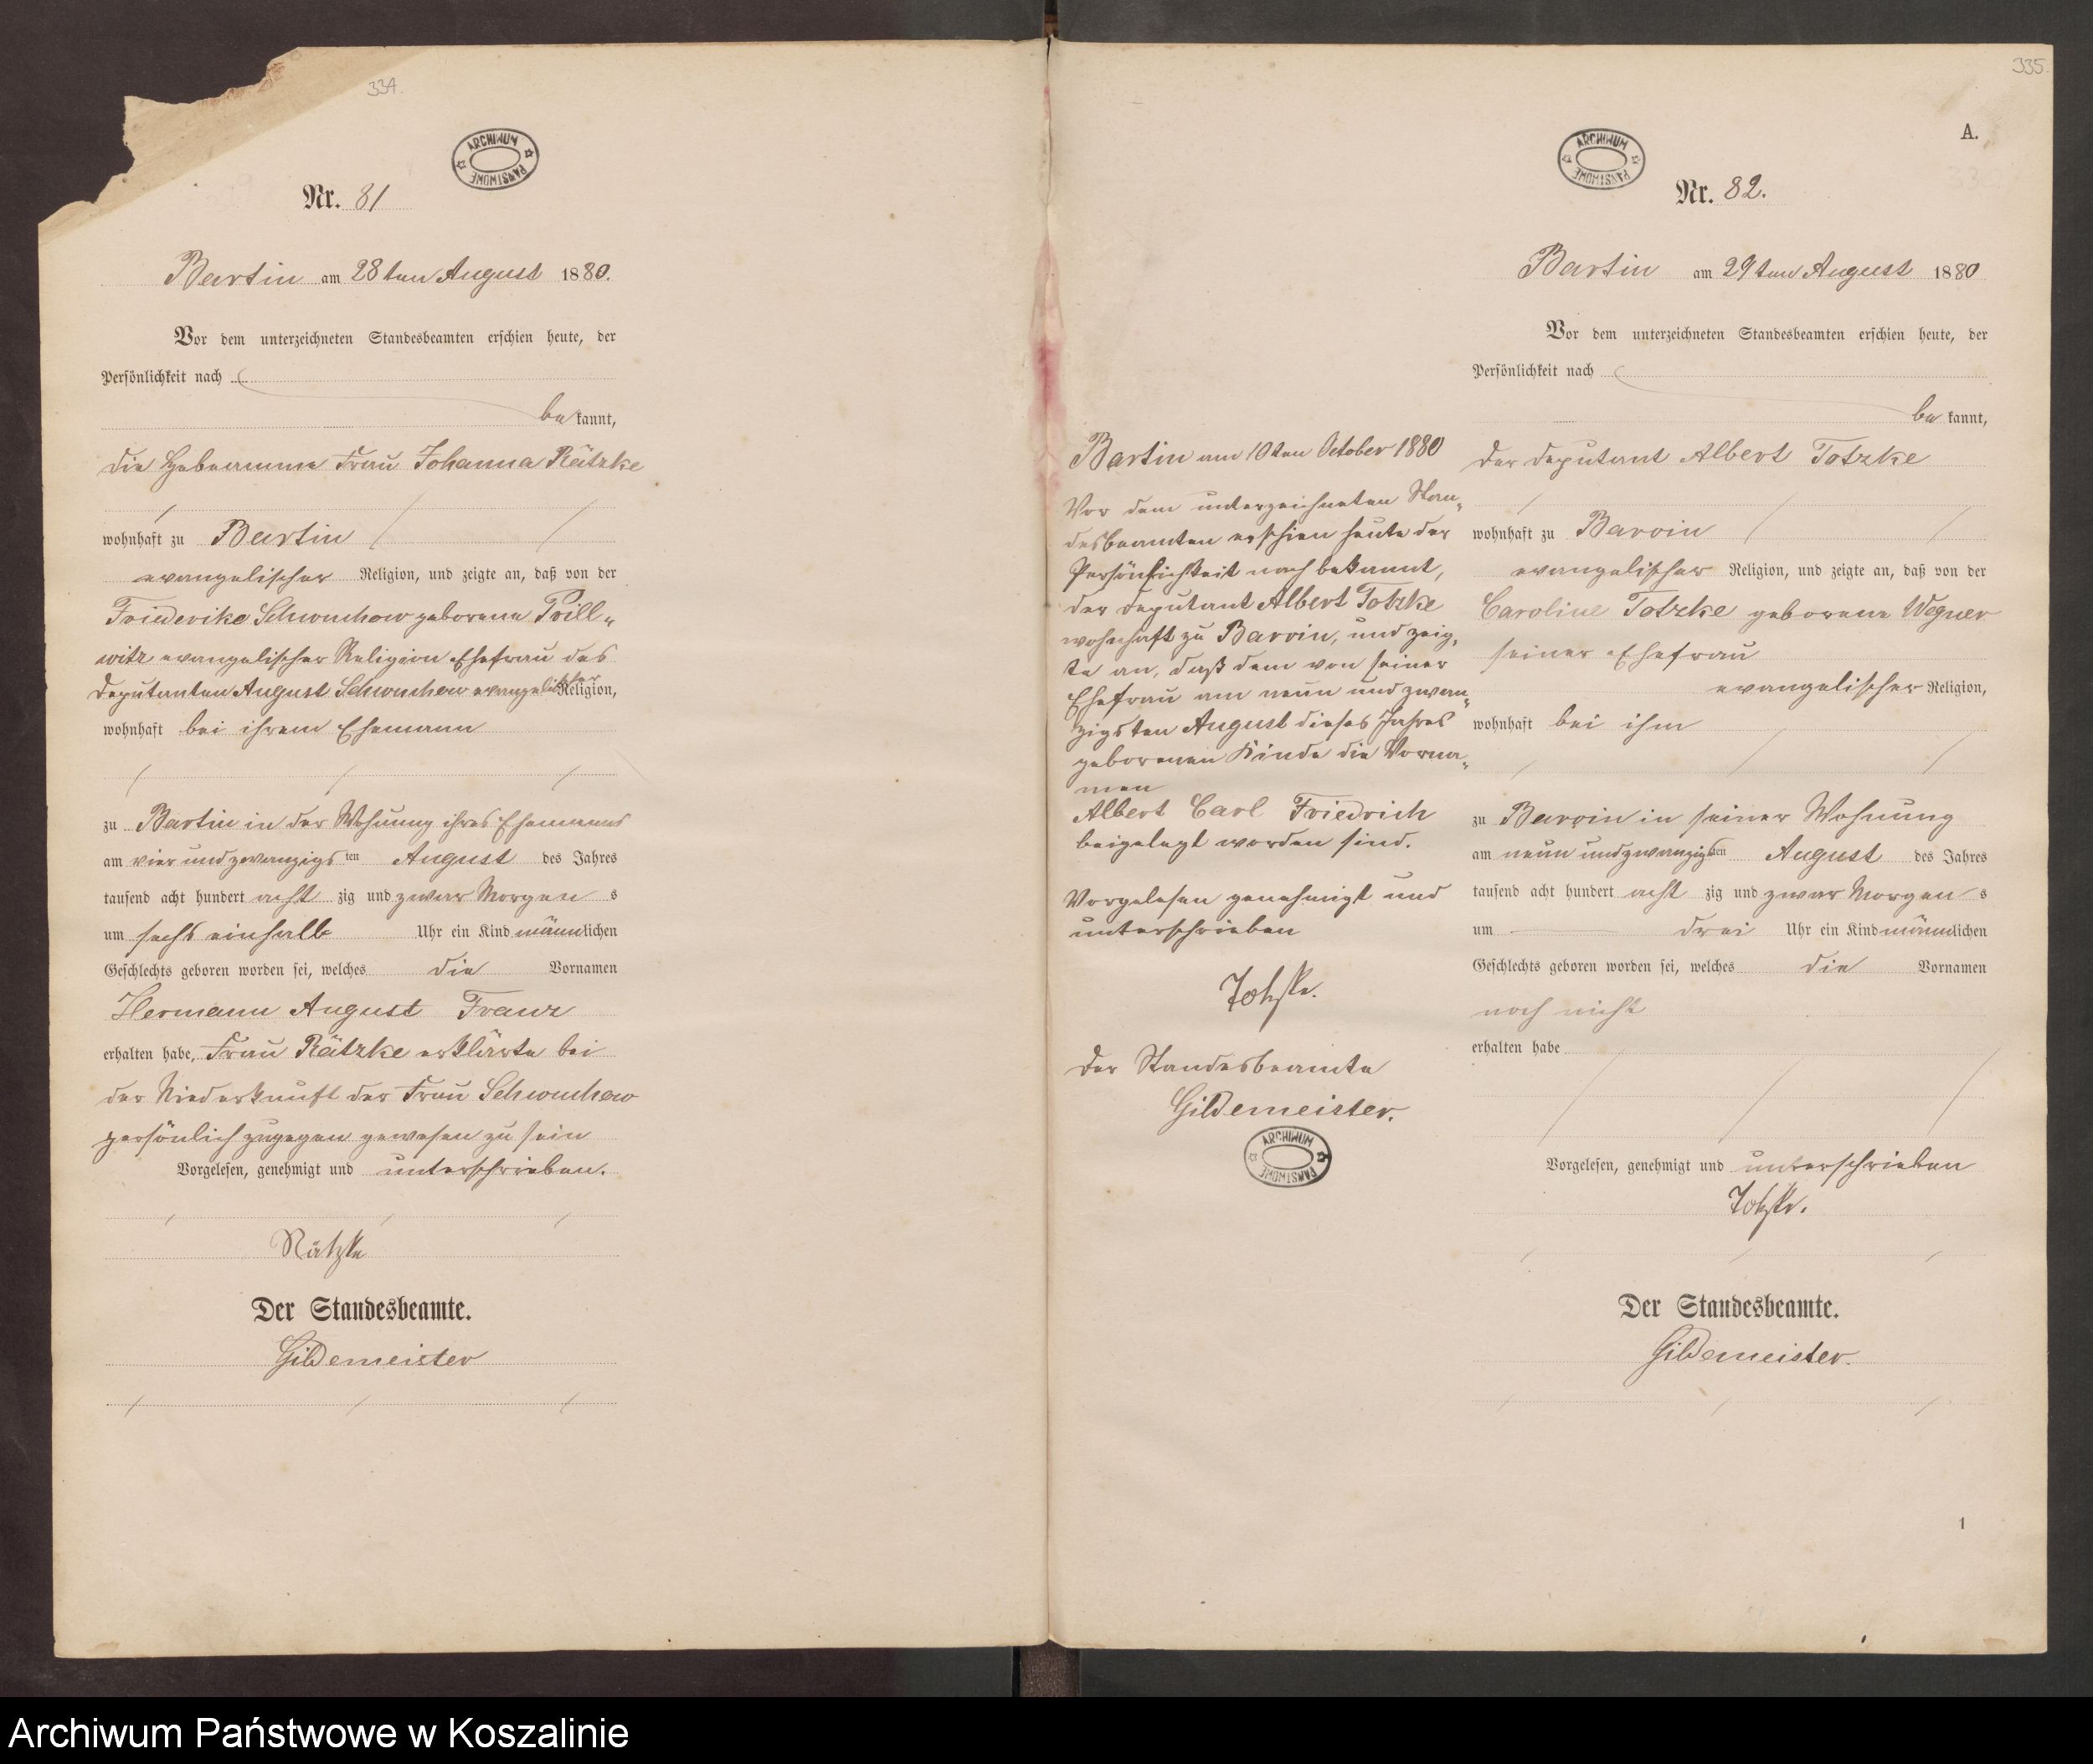 334.
ARCHIWUM PAŃSTWOWE
Nr. 81
Bartin am 28ten August 1880.
Vor dem unterzeichneten Standesbeamten erschien heute, der
Persönlichkeit nach
be kannt,
die Hebeamme Frau Johanna Rätzke
wohnhaft zu Bartin
evangelischer Religion, und zeigte an, daß von der
Friederike Schwuchow geborene Prill-
witz evangelischer Religion Ehefrau des
Deputanten August Schwuchow evangelischer Religion,
wohnhaft bei ihrem Ehemann
zu Bartin in der Wohnung ihres Ehemanns
am vier und zwanzigs ten August des Jahres
tausend acht hundert acht zig und zwar Morgen s
um sechs einhalb Uhr ein Kind männlichen
Geschlechts geboren worden sei, welches die Vornamen
Hermann August Franz
erhalten habe, Frau Rätzke erklärte bei
der Niederkunft der Frau Schwuchow
persönlich zugegen gewesen zu sein
Vorgelesen, genehmigt und unterschrieben.
Rätzke
Der Standesbeamte.
Gildemeister
335.
A.
ARCHIWUM PAŃSTWOWE
Nr. 82.
Bartin am 29ten August 1880
Vor dem unterzeichneten Standesbeamten erschien heute, der
Persönlichkeit nach
be kannt,
der Deputant Albert Totzke
wohnhaft zu Barvin
evangelischer Religion, und zeigte an, daß von der
Caroline Totzke geborene Wegner
seiner Ehefrau
evangelischer Religion,
wohnhaft bei ihm
zu Barvin in seiner Wohnung
am neun und zwanzigsten August des Jahres
tausend acht hundert acht zig und zwar Morgen s
um drei Uhr ein Kind männlichen
Geschlechts geboren worden sei, welches die Vornamen
noch nicht
erhalten habe
Vorgelesen, genehmigt und unterschrieben
Totzke.
Der Standesbeamte.
Gildemeister.
1
Bartin am 10ten October 1880
Vor dem unterzeichneten Stan-
desbeamten erschien heute der
Persönlichkeit nach bekannt,
der Deputant Albert Totzke
wohnhaft zu Barvin, und zeig-
te an, daß dem von seiner
Ehefrau am neun und zwan-
zigsten August dieses Jahres
geborenen Kinde die Vorna-
men
Albert Carl Friedrich
beigelegt worden sind.
Vorgelesen genehmigt und
unterschrieben
Totzke.
Der Standesbeamte
Gildemeister.
ARCHIWUM PAŃSTWOWE
Archiwum Państwowe w Koszalinie